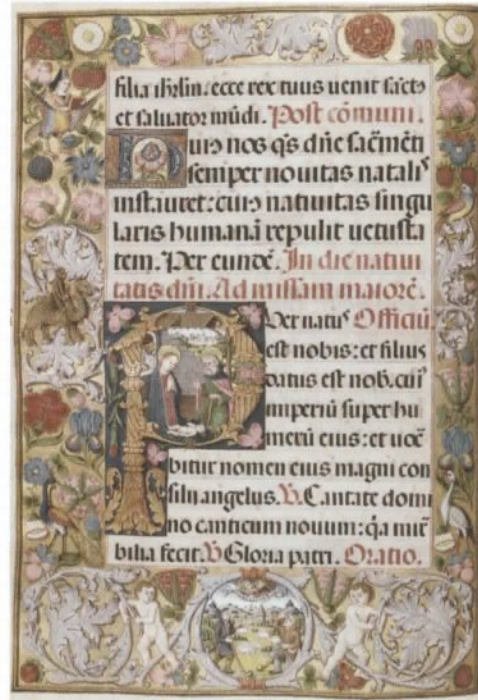 filia ihrlm. ecce rex tuus uenit sāctꝯ
et saluator mūdi. Post cōmuni.
Huiꝯ nos q̄s dn̄e sacm̄ēti
semper nouitas natalis
instauret: cuiꝯ natiuitas singu
laris humanā repulit uetusta
tem. Per eundē. In die natiui
tatis dn̄i. Ad missam maiorē.
Puer natus Officiū.
est nobis: et filius
datus est nob. cuiꝰ
imperiū super hu
merū eius: et uocā
bitur nomen eius magni con
silii angelus. V. Cantate domi
no canticum nouum: q̄a mir̄
bilia fecit. V Gloria patri. Oratio.